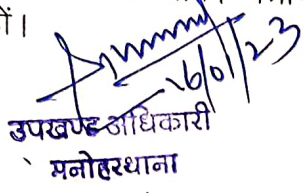 ों।
16/01/23
उपखण्ड अधिकारी
मनोहरथाना